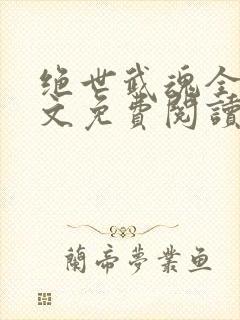 绝世武魂全
文免費閱讀
蘭帝夢業鱼